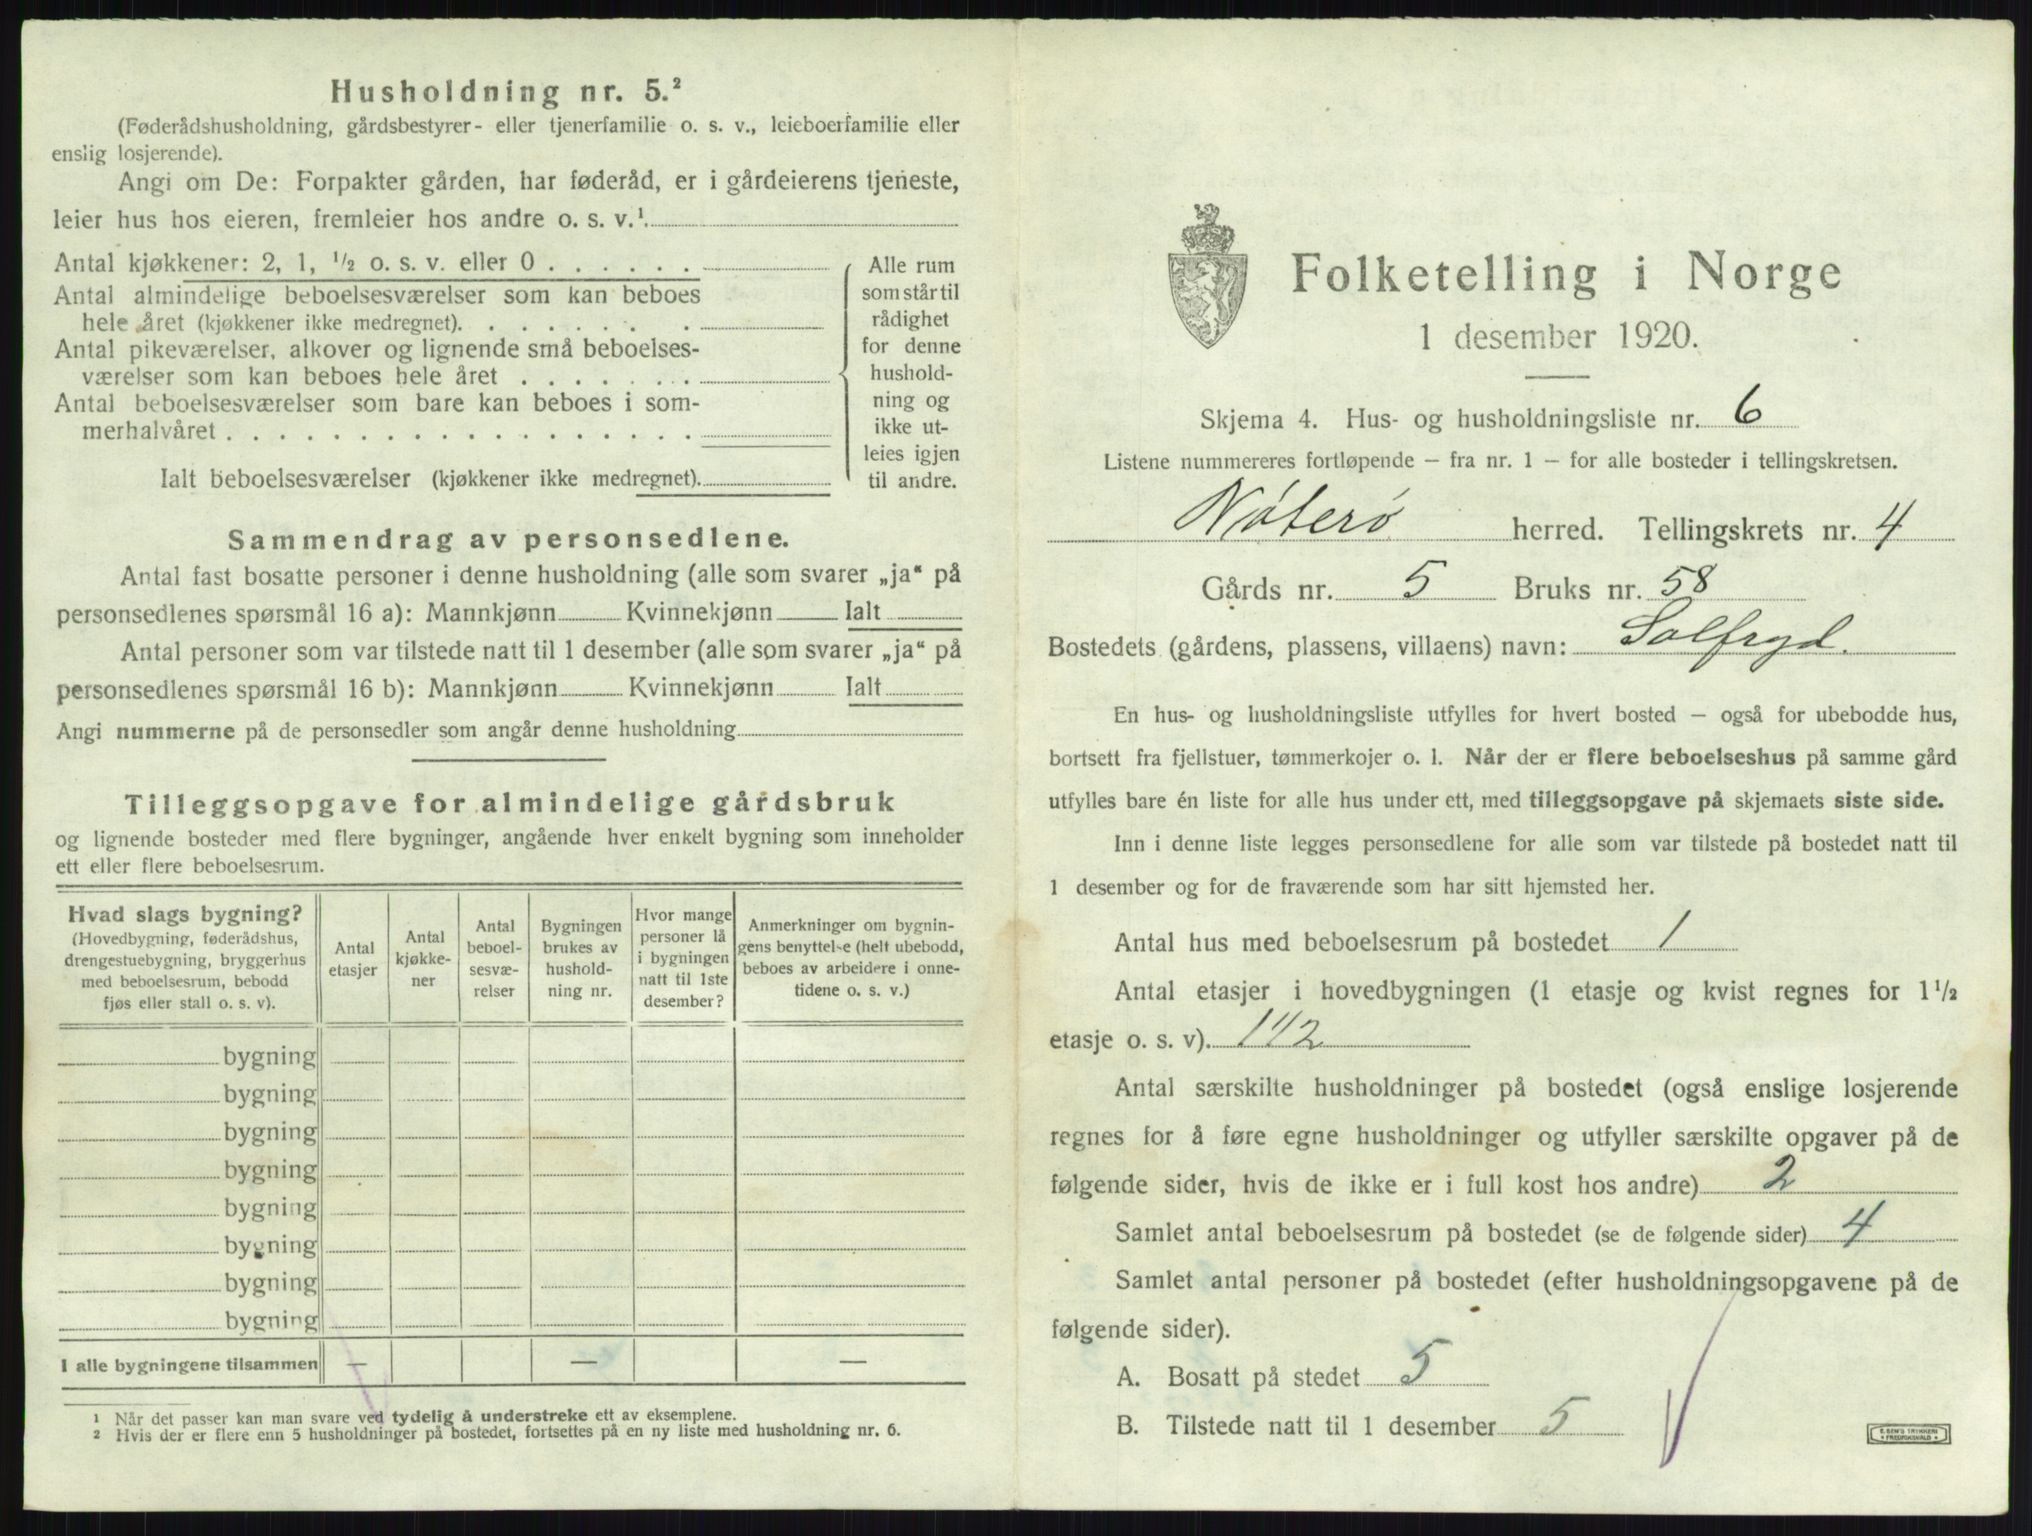 Husholdning nr. 5.²
(Føderådshusholdning, gårdsbestyrer- eller tjenerfamilie o. s. v., leieboerfamilie eller
enslig losjerende).
Angi om De: Forpakter gården, har føderåd, er i gårdeierens tjeneste,
leier hus hos eieren, fremleier hos andre o. s. v.¹
Antal kjøkkener: 2, 1, ¹/₂ o. s. v. eller 0
Antal almindelige beboelsesværelser som kan beboes
hele året (kjøkkener ikke medregnet).
Antal pikeværelser, alkover og lignende små beboelses-
værelser som kan beboes hele året
Antal beboelsesværelser som bare kan beboes i som-
merhalvåret
Ialt beboelsesværelser (kjøkkener ikke medregnet).
Alle rum
som står til
rådighet
for denne
hushold-
ning og
ikke ut-
leies igjen
til andre.
Sammendrag av personsedlene.
Antal fast bosatte personer i denne husholdning (alle som svarer „ja“ på
personsedlenes spørsmål 16 a): Mannkjønn Kvinnekjønn Ialt
Antal personer som var tilstede natt til 1 desember (alle som svarer „ja“ på
personsedlenes spørsmål 16 b): Mannkjønn Kvinnekjønn Ialt
Angi nummerne på de personsedler som angår denne husholdning
Tilleggsopgave for almindelige gårdsbruk
og lignende bosteder med flere bygninger, angående hver enkelt bygning som inneholder
ett eller flere beboelsesrum.
Hvad slags bygning?
(Hovedbygning, føderådshus,
drengestuebygning, bryggerhus
med beboelsesrum, bebodd
fjøs eller stall o. s. v).
Antal
etasjer
Antal
kjøkke-
ner
Antal
beboel-
sesvæ-
relser
Bygningen
brukes av
hushold-
ning nr.
Hvor mange
personer lå
i bygningen
natt til 1ste
desember?
Anmerkninger om bygnin-
gens benyttelse (helt ubebodd,
beboes av arbeidere i onne-
tidene o. s. v.)
bygning
bygning
bygning
bygning
bygning
bygning
bygning
bygning
I alle bygningene tilsammen — — —
¹ Når det passer kan man svare ved tydelig å understreke ett av eksemplene.
² Hvis der er flere enn 5 husholdninger på bostedet, fortsettes på en ny liste med husholdning nr. 6.
Folketelling i Norge
1 desember 1920.
Skjema 4. Hus- og husholdningsliste nr. 6
Listene nummereres fortløpende – fra nr. 1 – for alle bosteder i tellingskretsen.
Nøterø herred. Tellingskrets nr. 4
Gårds nr. 5 Bruks nr. 58
Bostedets (gårdens, plassens, villaens) navn: Solfryd.
En hus- og husholdningsliste utfylles for hvert bosted – også for ubebodde hus,
bortsett fra fjellstuer, tømmerkojer o. l. Når der er flere beboelseshus på samme gård
utfylles bare én liste for alle hus under ett, med tilleggsopgave på skjemaets siste side.
Inn i denne liste legges personsedlene for alle som var tilstede på bostedet natt til
1 desember og for de fraværende som har sitt hjemsted her.
Antal hus med beboelsesrum på bostedet 1
Antal etasjer i hovedbygningen (1 etasje og kvist regnes for 1¹/₂
etasje o. s. v). 1 1/2
Antal særskilte husholdninger på bostedet (også enslige losjerende
regnes for å føre egne husholdninger og utfyller særskilte opgaver på de
følgende sider, hvis de ikke er i full kost hos andre) 2
Samlet antal beboelsesrum på bostedet (se de følgende sider) 4
Samlet antal personer på bostedet (efter husholdningsopgavene på de
følgende sider).
A. Bosatt på stedet 5
B. Tilstede natt til 1 desember 5